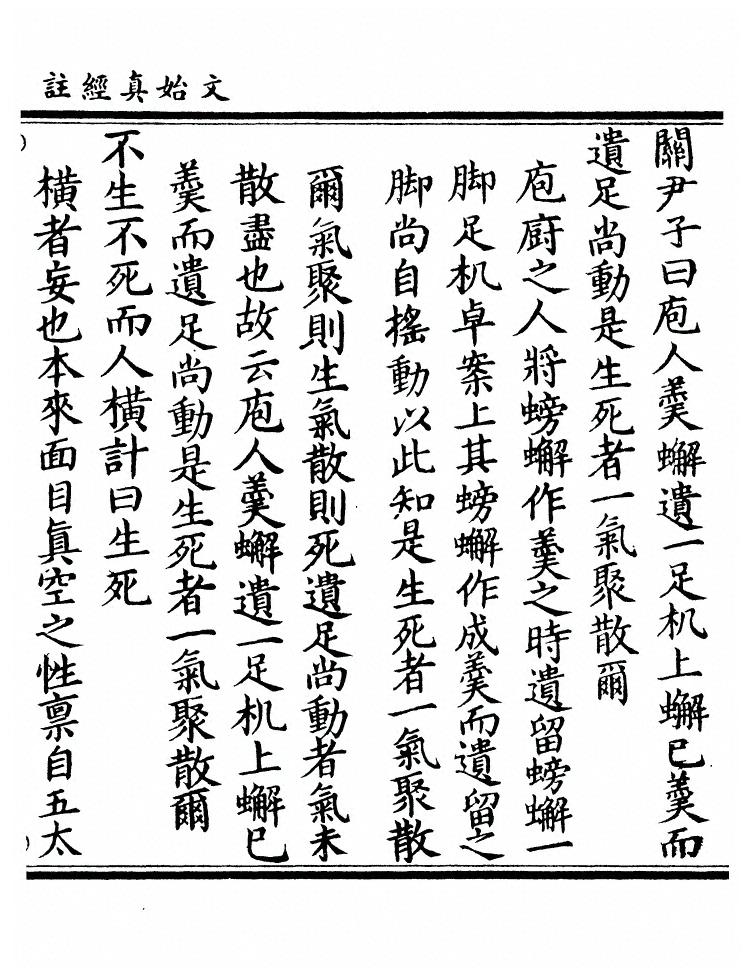 文始真經註
關尹子曰庖人羹蠏遺一足机上蠏已羹而
遺足尚動是生死者一氣聚散爾
庖廚之人將螃蠏作羹之時遺留螃蠏一
脚足机卓案上其螃蠏作成羹而遺留之
脚尚自搖動以此知是生死者一氣聚散
爾氣聚則生氣散則死遺足尚動者氣未
散盡也故云庖人羹蠏遺一足机上蠏已
羹而遺足尚動是生死者一氣聚散爾
不生不死而人橫計曰生死
橫者妄也本來面目眞空之性禀自五太